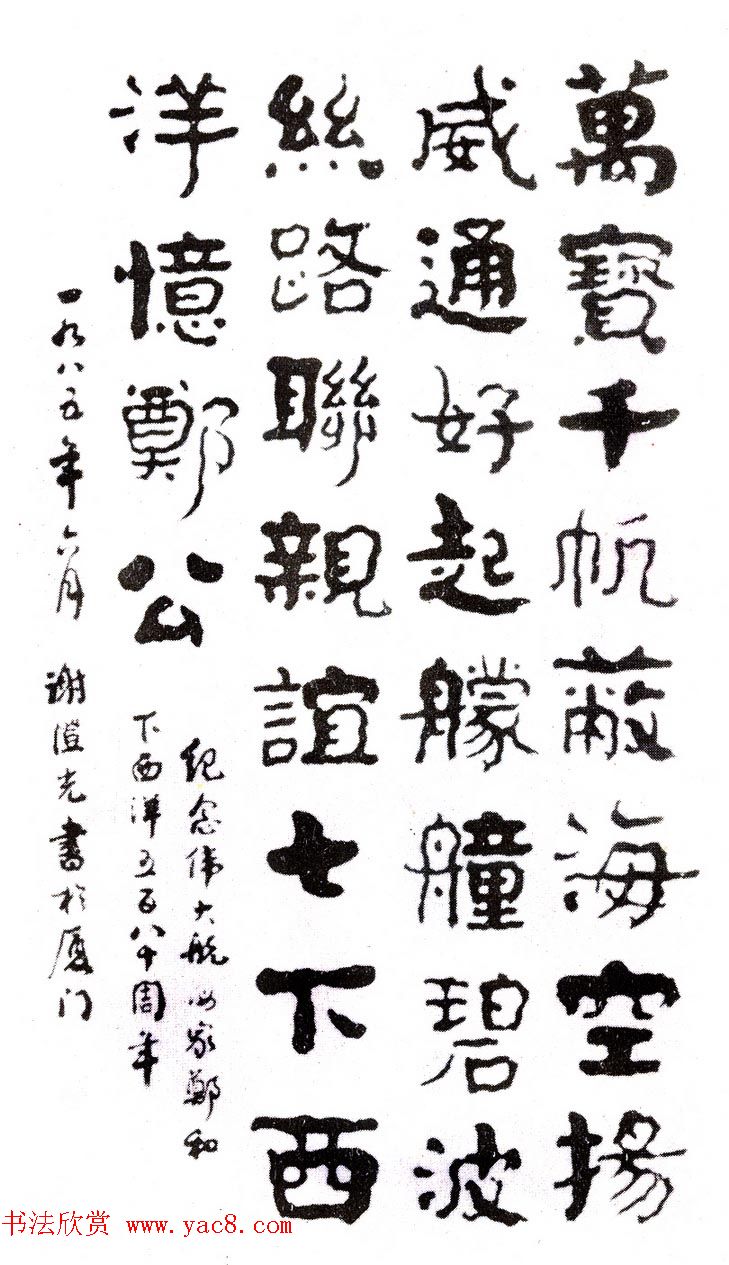 萬寶千帆蔽海空揚
威通好起艨艟碧波
絲路聯親誼七下西
洋憶鄭公
纪念伟大航海家鄭和
下西洋五百八十周年
一九八五年六月 谢澄光書於厦门
书法欣赏 www.yac8.com